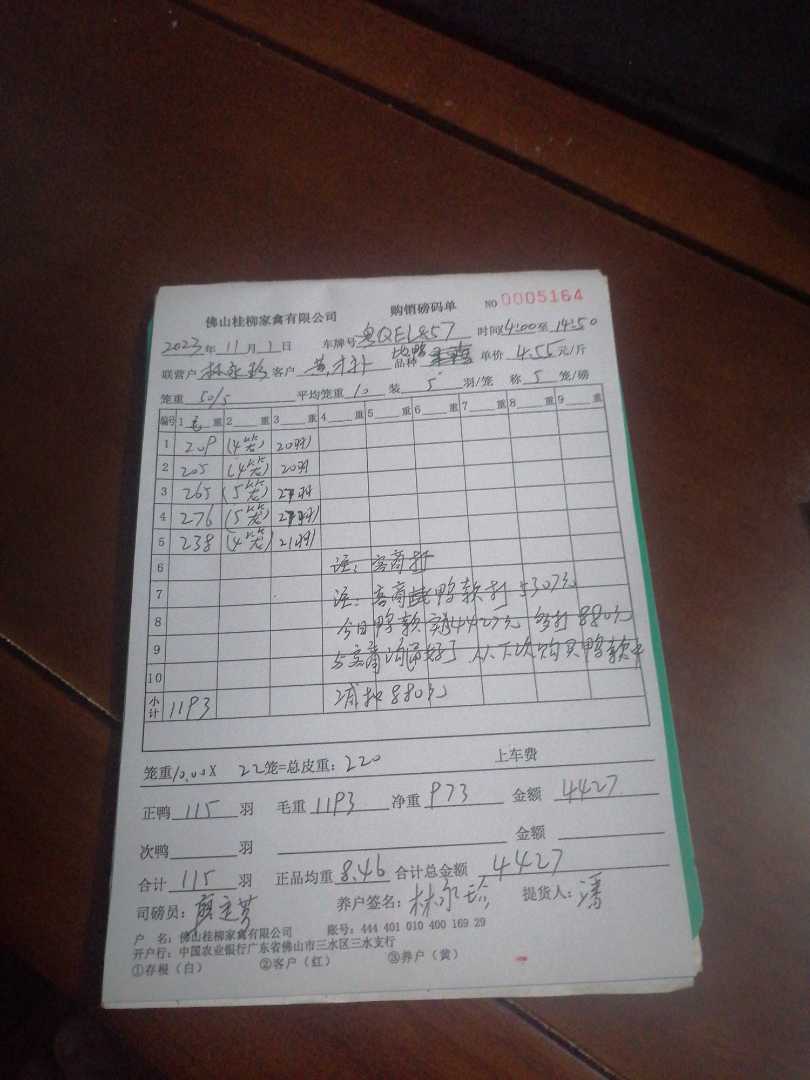 佛山桂柳家禽有限公司 购销磅码单 NO 0005164
2023年 11月 1日 车牌号 粤QEL857 时间 14:00至 14:50
联营户 林永珍 客户 品种 单价 4.55 元/斤
笼重 50/5 平均笼重 10 装 5 羽/笼 称 5 笼/磅
编号 1 毛 重 2 重 3 重 4 重 5 重 6 重 7 重 8 重 9 重
1 209 (4笼 20羽)
2 205 (4笼 20羽
3 265 (5笼 27羽
4 276 (5笼 27羽)
5 238 (4笼 21羽)
6 注：客商打
7 注：客商 鸭款打5307元
8 今日鸭款实4427元 多打880元
9 与客商沟通好了 从下次购买鸭款中
10 减扣880元
小计 1193
笼重10.00X 22笼=总皮重：220 上车费
正鸭 115 羽 毛重 1193 净重 973 金额 4427
次鸭 羽 金额
合计 115 羽 正品均重 8.46 合计总金额 4427
司磅员： 养户签名：林永珍 提货人：潘
户 名：佛山桂柳家禽有限公司 账号：444 401 010 400 169 29
开户行：中国农业银行广东省佛山市三水区三水支行
①存根（白） ②客户（红） ③养户（黄）